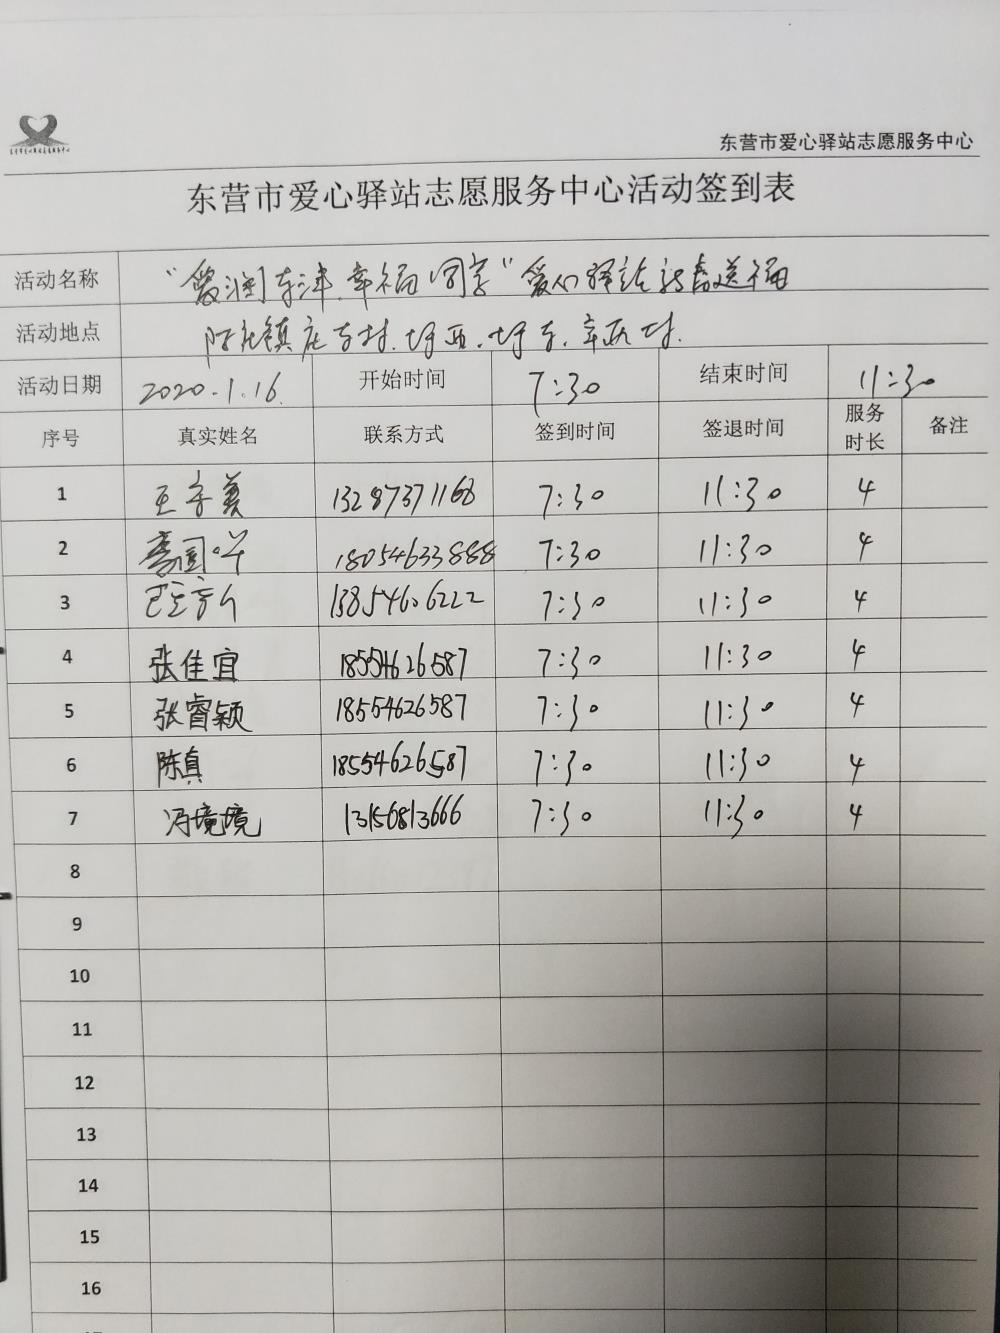 东营市爱心驿站志愿服务中心
东营市爱心驿站志愿服务中心活动签到表
活动名称 "爱润东津.幸福同享"爱心驿站新春送福
活动地点 陈庄镇庄 村. 西. 东. 村.
活动日期 2020.1.16. 开始时间 7:30 结束时间 11:30
序号 真实姓名 联系方式 签到时间 签退时间 服务时长 备注
1 王 13287371168 7:30 11:30 4
2 18054633888 7:30 11:30 4
3 13854606222 7:30 11:30 4
4 张佳宜 18554626587 7:30 11:30 4
5 张睿颖 18554626587 7:30 11:30 4
6 陈真 18554626587 7:30 11:30 4
7 冯境境 13156813666 7:30 11:30 4
8
9
10
11
12
13
14
15
16